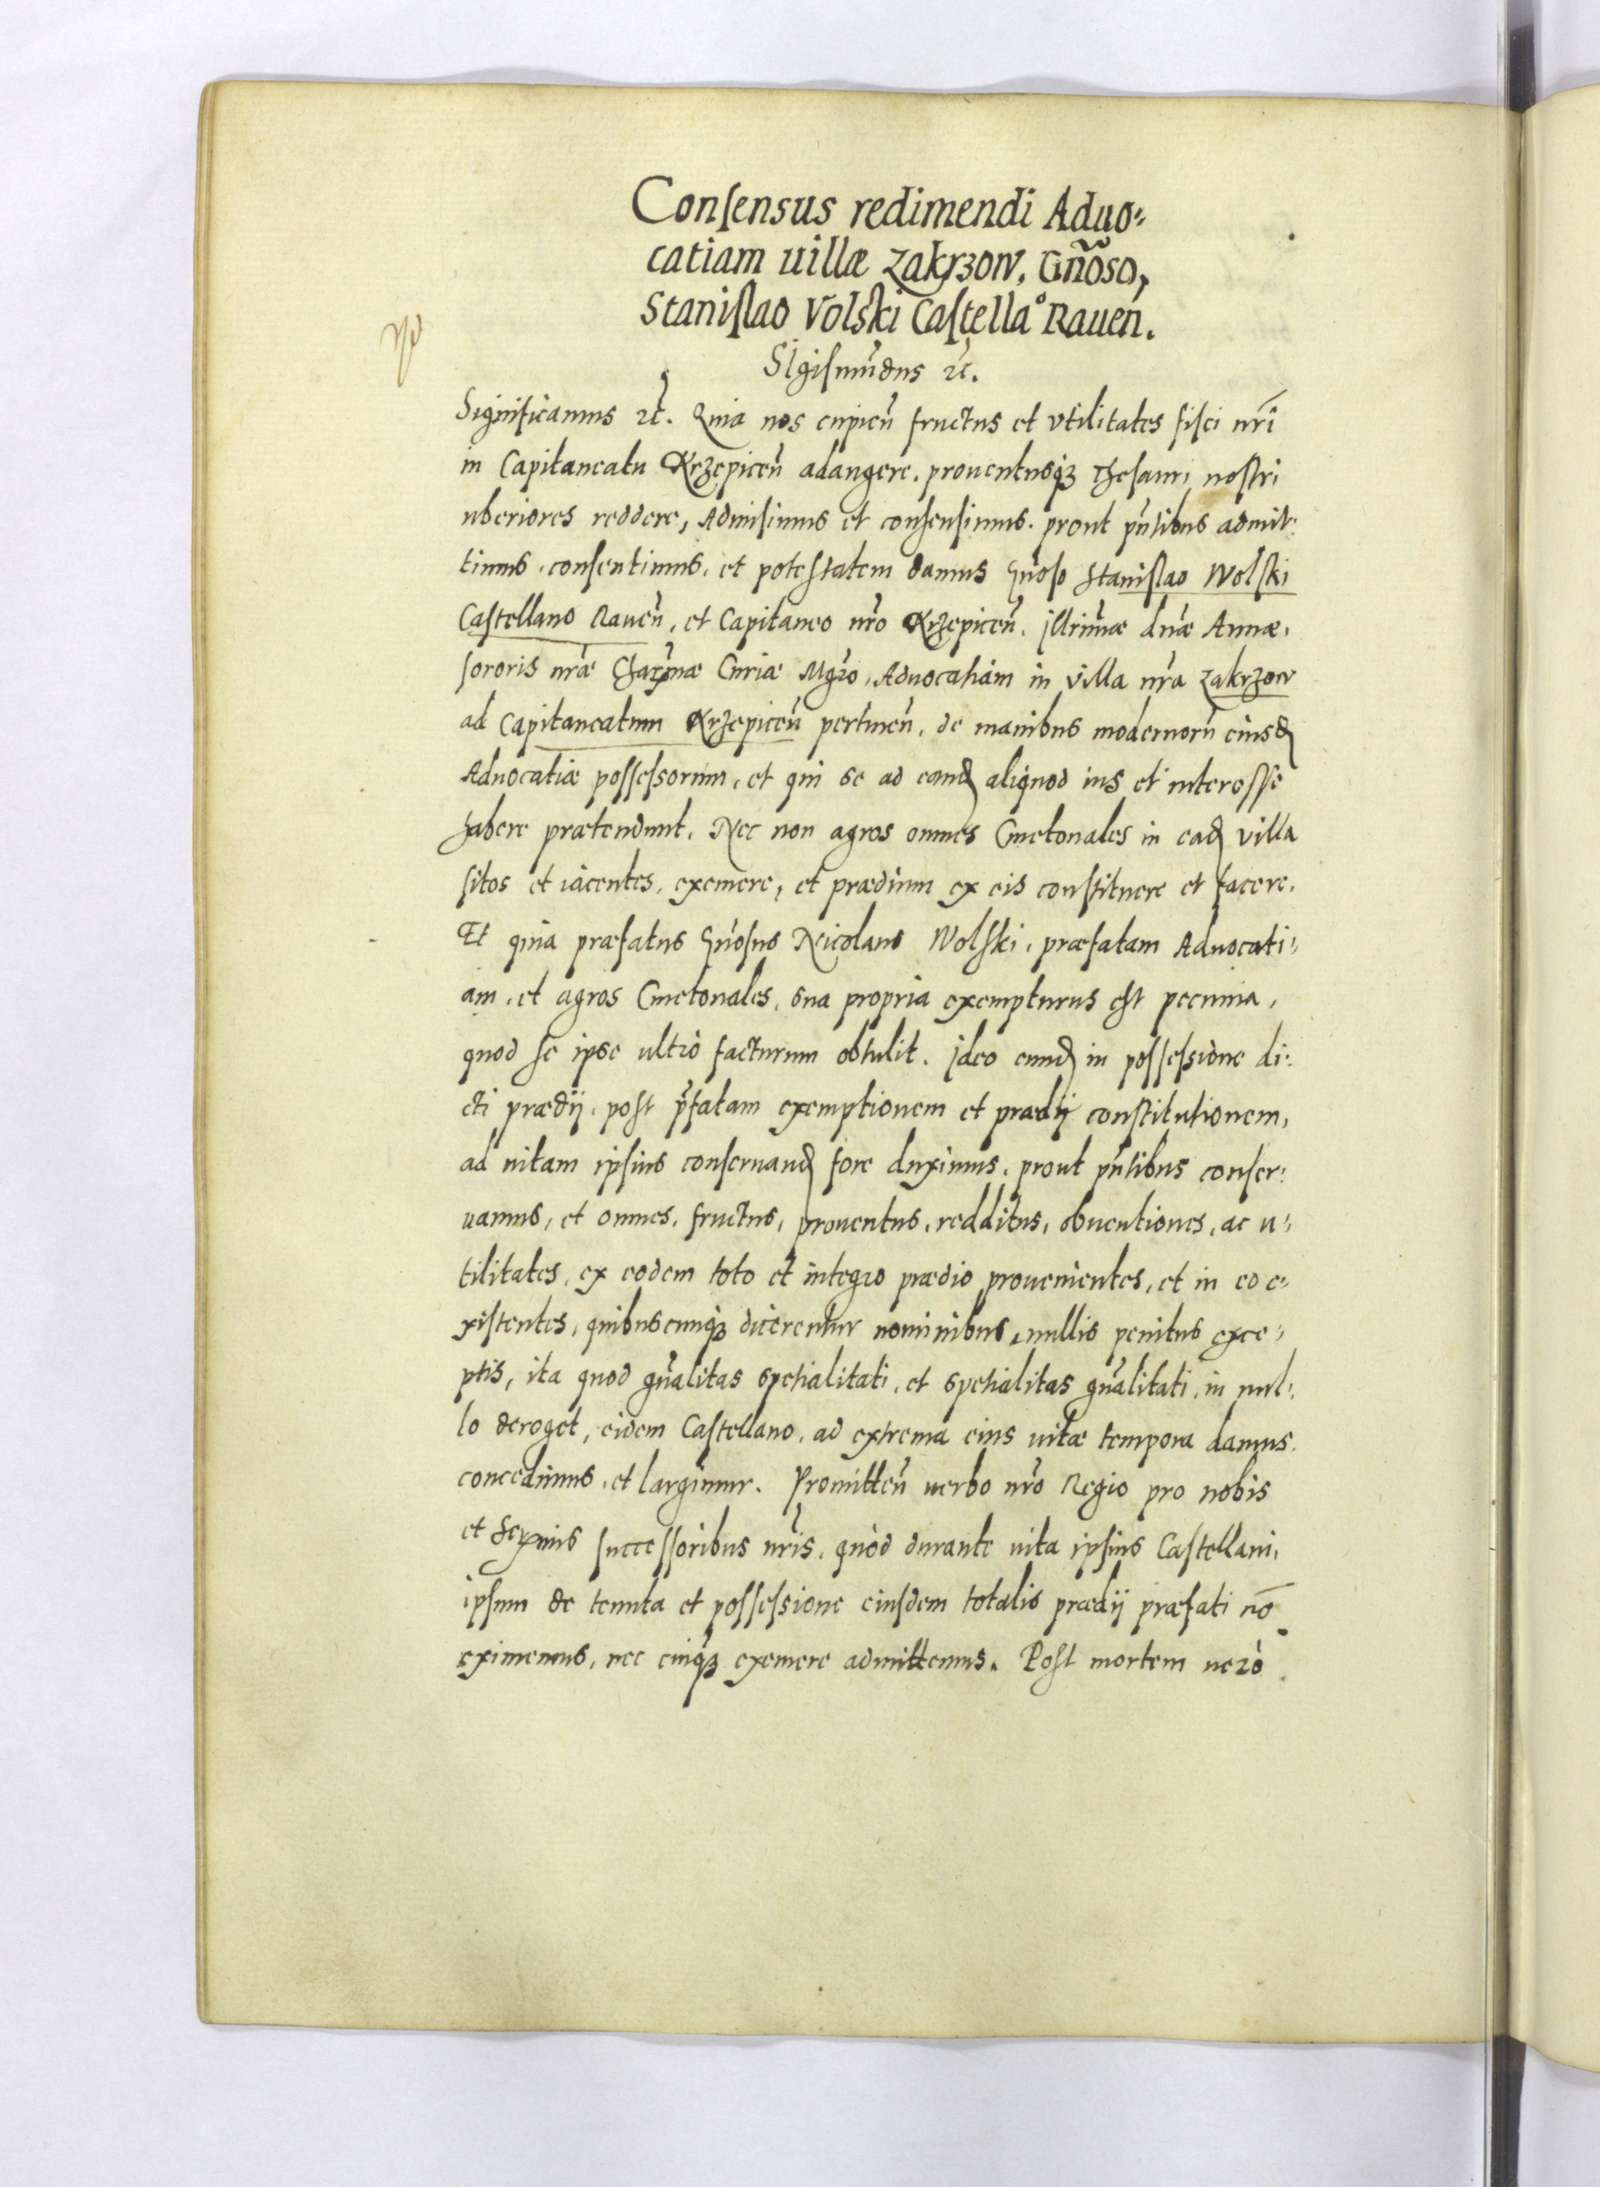 Consensus redimendi Aduo⸗
catiam uillæ Zakrzow, Gñoso,
Stanislao Volski Castellaº Rauen.
Sigismūdus ꝛc̃.
Significamus ꝛc̃. Quia nos cupieñ fructus et vtilitates fisci nr̃i
in Capitaneatu Krzepiceñ adaugere, prouentusqꝫ thesauri nostri
uberiores reddere, Admisimus et consensimus, prout pñtibus admit⸗
timus, consentimus, et potestatem damus Gñoso Stanislao Wolski
Castellano Raueñ, et Capitaneo nr̃o Krzepiceñ, Illrimæ dnæ Annæ,
sororis nr̃æ Charmæ Curiæ Mgr̃o, Aduocatiam in villa nr̃a Zakrzow
ad Capitaneatum Krzepiceñ pertineñ, de manibus modernorũ eiusd̃
Aduocatiæ possessorum, et qui se ad eand̃ aliquod ius et interesse
habere prætendunt. Nec non agros omnes Cmetonales in ead̃ villa
sitos et iacentes, exemere, et prædium ex eis constituere et facere.
Et quia præfatus Gñosus Nicolaus Wolski, præfatam Aduocati⸗
am, et agros Cmetonales, sua propria exempturus est pecunia,
quod se ipse ultrò facturum obtulit. Ideo eund̃ in possessione di⸗
cti prædij, post p̃fatam exemptionem et prædij constitutionem,
ad uitam ipsius conseruand̃ fore duximus, prout pñtibus conser⸗
uamus, et omnes, fructus, prouentus, redditus, obuentiones, ac u⸗
tilitates, ex eodem toto et integro prædio prouenientes, et in eo e⸗
xistentes, quibuscunqꝫ dicerentur nominibus, nullis penitus exce⸗
ptis, ita quod gñalitas spetialitati, et spetialitas gñalitati, in nul⸗
lo deroget, eidem Castellano, ad extrema eius uitæ tempora damus,
concedimus, et largimur. Promitteñ uerbo nr̃o Regio pro nobis
et Sermis successoribus nr̃is, quòd durante uita ipsius Castellani,
ipsum de tenuta et possessione eiusdem totalis prædij præfati nō
eximemus, nec cuiqꝫ exemere admittemus. Post mortem uerò